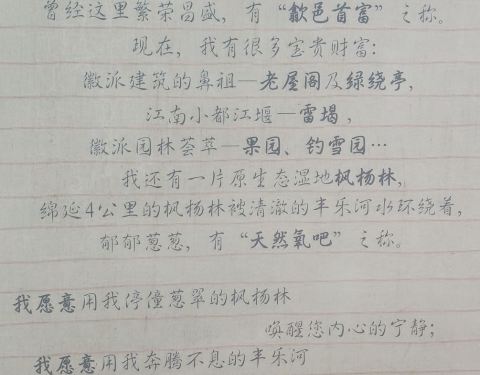 曾经这里繁荣昌盛，有“歙邑首富”之称。
现在，我有很多宝贵财富：
徽派建筑的鼻祖—老屋阁及绿绕亭，
江南小都江堰—雷堨，
徽派园林荟萃—果园、钓雪园…
我还有一片原生态湿地枫杨林，
绵延4公里的枫杨林被清澈的丰乐河水环绕着，
郁郁葱葱，有“天然氧吧”之称。
我愿意用我停僮葱翠的枫杨林
唤醒您内心的宁静；
我愿意用我奔腾不息的丰乐河